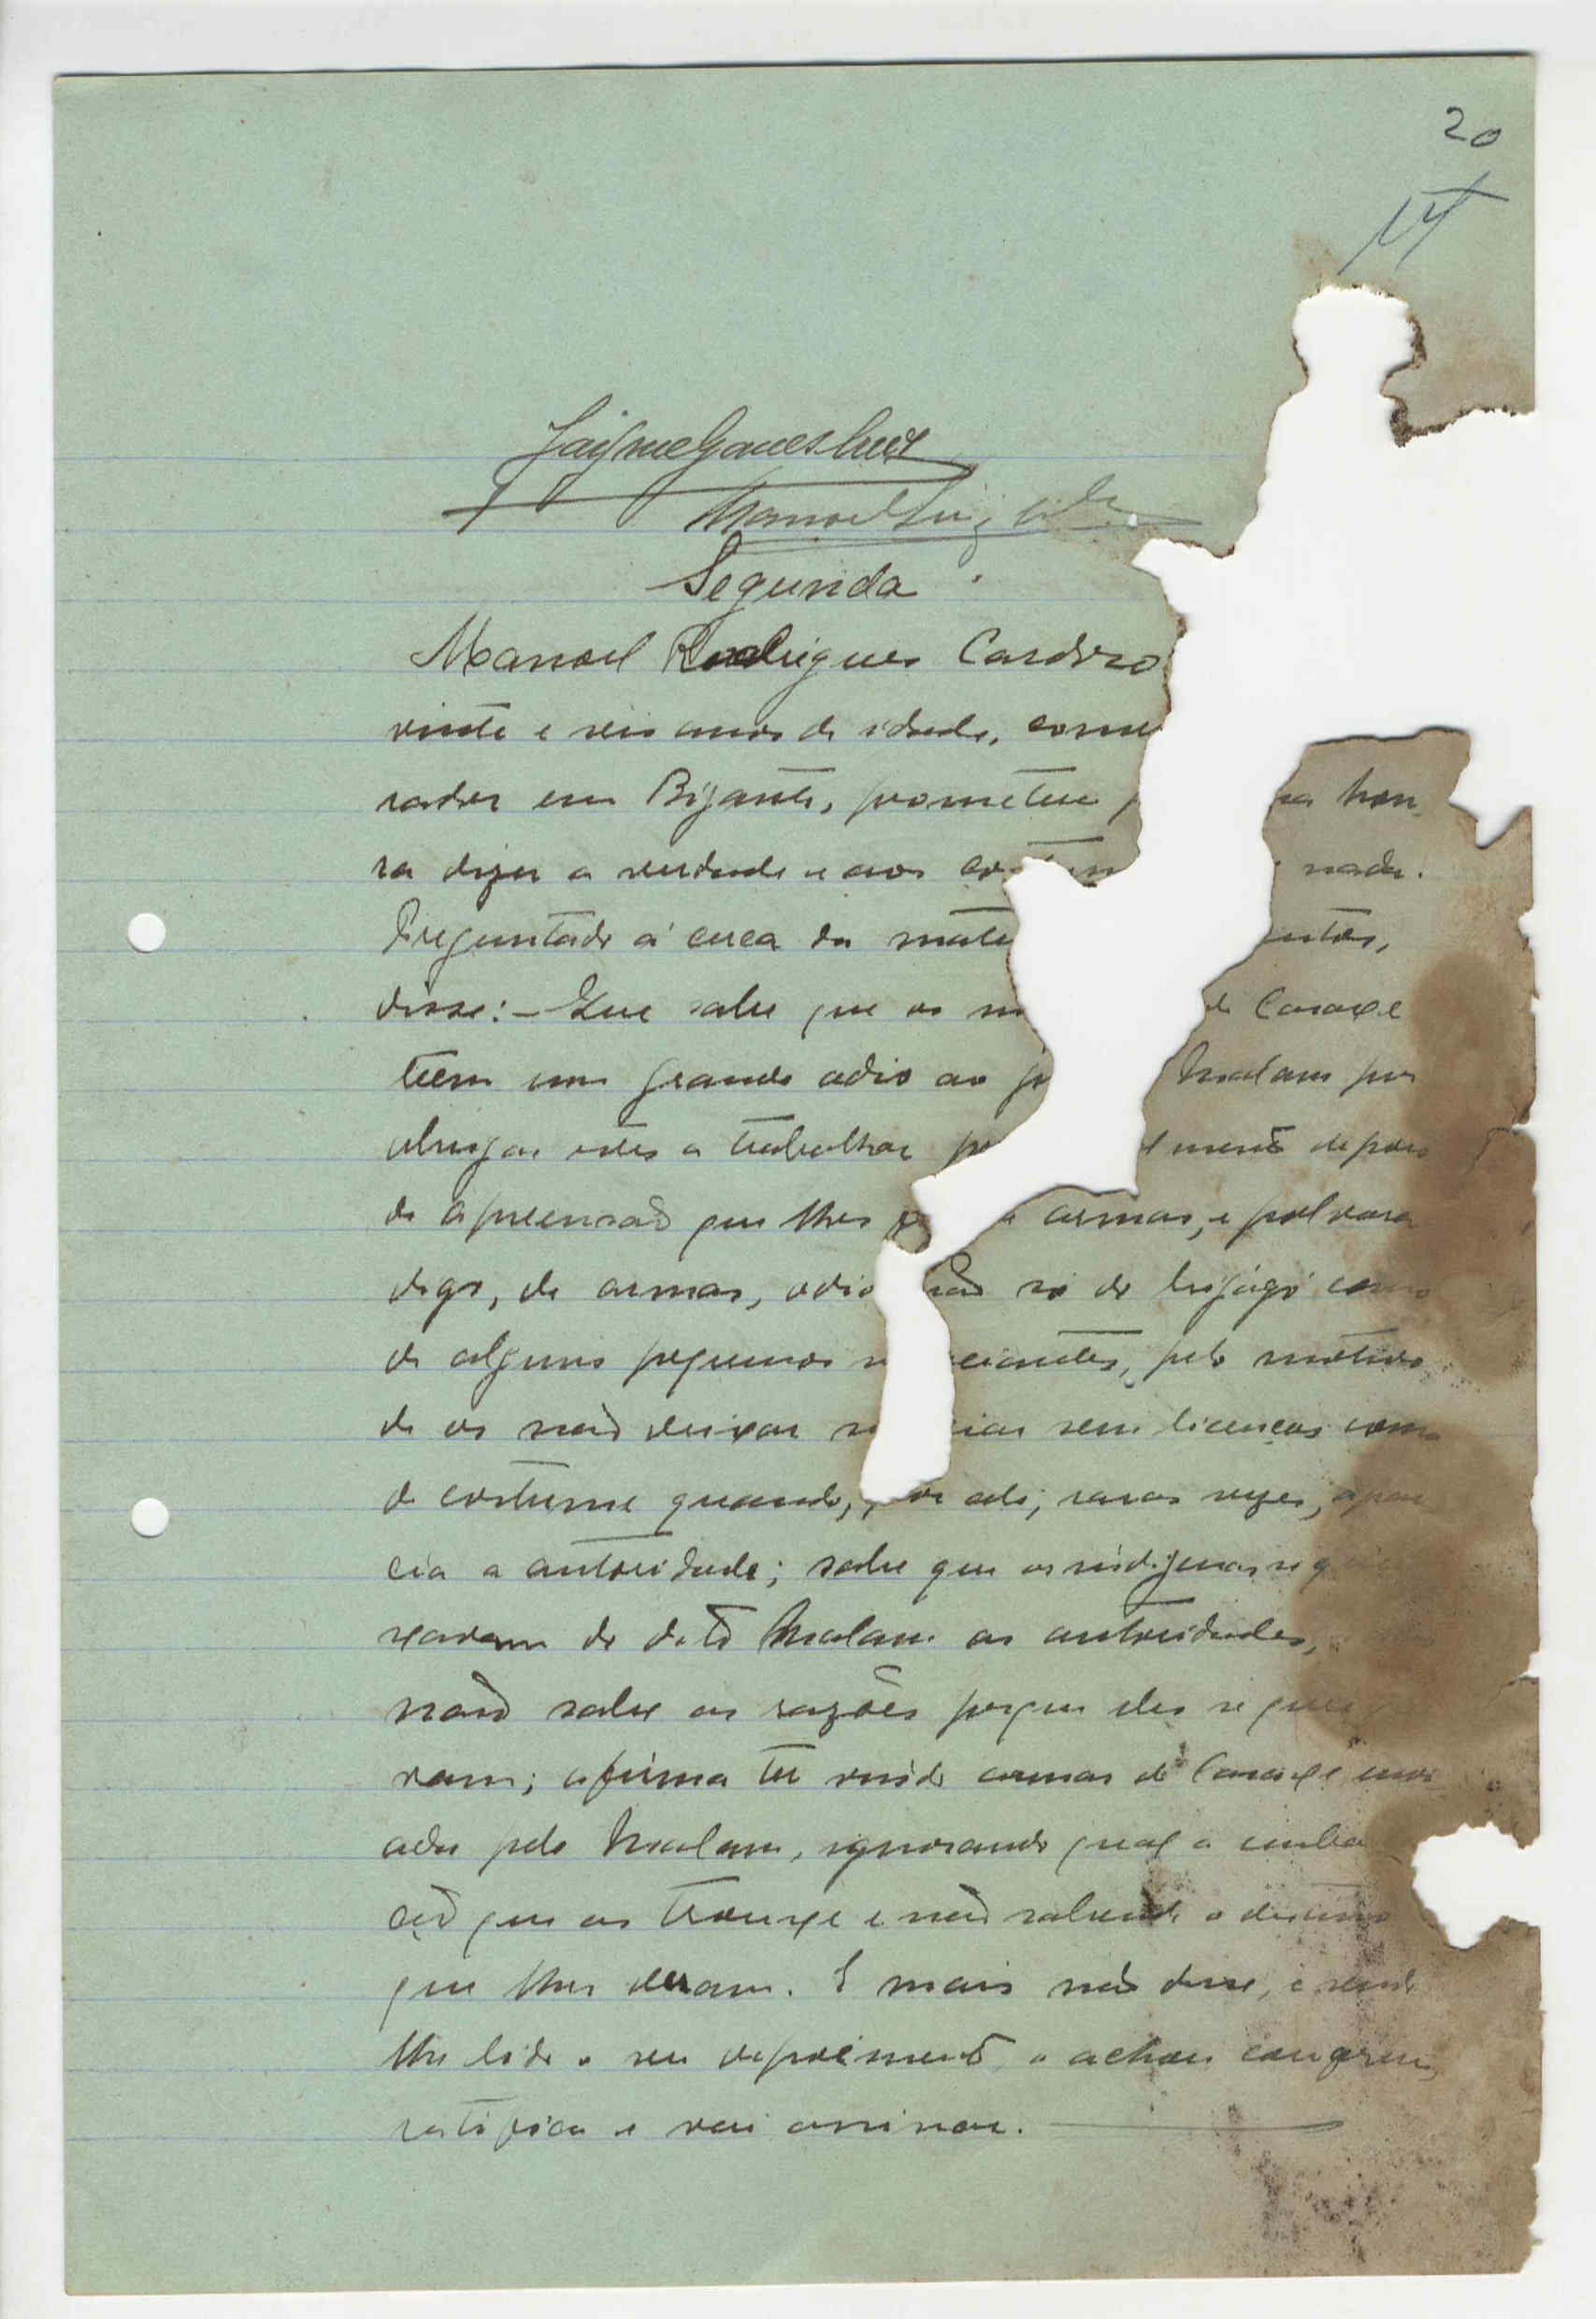 20
Segunda
Manoel Rodrigues Cardoso
vinte e seis anos de idade, come
rador em Bijante, prometeu p ua hon
ra dizer a verdade e aos cos um nada.
Preguntado á cerca da mate utos,
disse: – Que sabe que os in de Caraxe
teem um grande odio ao Malam por
obrigar estes a trabalhar mente depois
de apreensaõ que lhes armas, e polvora
digo, de armas, odio naõ só do bijagó como
de alguns pequenos n ciantes, pelo motivo
de os naõ deixar n ciar sem licenças como
de costume quando, por ali, raras vezes, apar
cia a autoridade; sabe que os indigenas se quei
xaram do dito Malam as autoridades,
naõ sabe as razões porque eles se quei
xaram; afirma ter vindo armas de Caraxe envi
adas pelo Malam, ignorando qual a emba
caõ que as trouxe e naõ sabendo o destino
que lhes deram. E mais naõ disse, e sendo
lhe lido o seu depoimento o achou conforme,
ratifica e vai assinar.